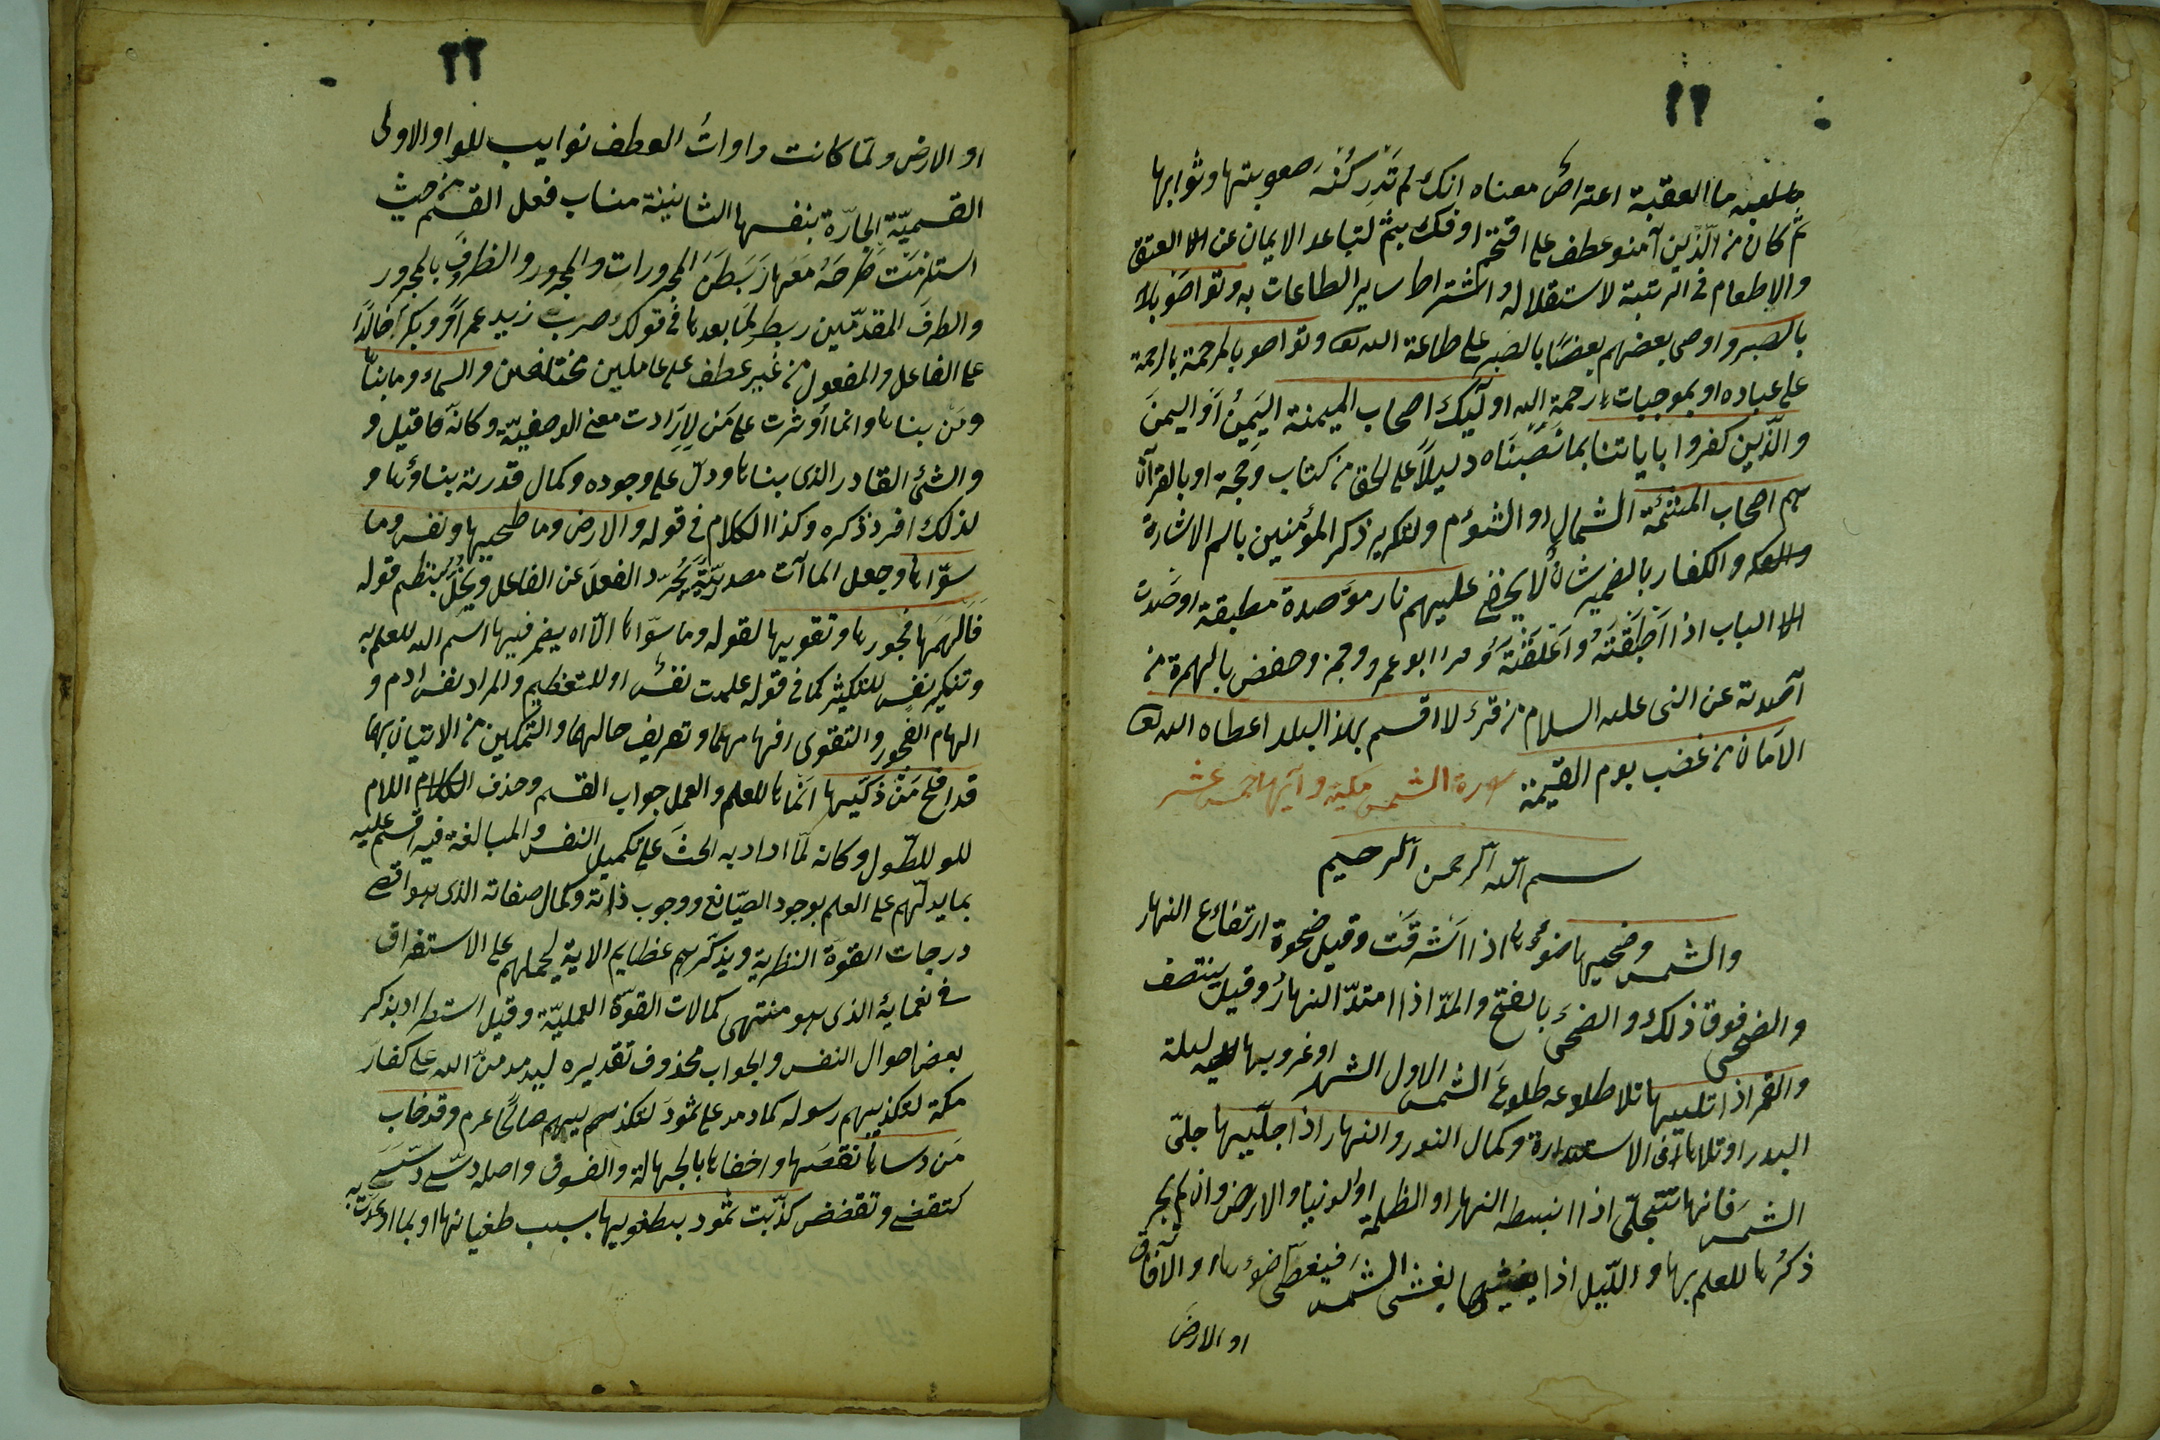 ٢٢
وما العقبة اعتراضٌ معناه انك لم تَدرِ كُنْهَ صعوبتها وثوابها
ثم كان من الّذين آمنو عطف على اقتحم او فك بثم لتباعد الايمان عن العتق
والاطعام فى الرتبة لاستقلاله واشتراط ساير الطاعات به وتواصَو
بالصبر واوصى بعضهم بعضًا بالصبر على طاعة الله وتواصو بالمرحمة بالرحمة
على عباده او بموجبات رحمة الله اولئِك اصحاب الميمنة اليَمينُ اَو اليمنَ
والّذين كفروا باياتنا بما نَصَبنَاه دليلاً على الحق من كتاب وحجة او بالقرآن
هم اصحاب المشئمة الشمال او الشؤم ولتكرير ذكر المؤمنين باسم الاشارة
والكفار بالضمير شانٌ لا يخفى عليهم نار مؤَصدة مطبقة اوصدت
الباب اذا اَطبَقْتَهُ وَاَغلَقْتَهُ وقرا ابو عمرو وحمزه وحفض بالهمزة من
آصدته عن النبى عليه السلام من قرء لا اقسم بهذا البلد اعطاه الله
الاَمان من غضب يوم القيمة سورة الشمس مكية وآيها خمس عشر
بسم الله الرحمن الرحيم
والشمس وضحيها ضوئها اذا اشرَقَت وقيل ضحوة ارتفاع النهار
والضحى فوق ذلك والضحَى بالفتح والمدّ اذا امتدّ النهارُ وقيل ينتصف
والقمر اذا تليها تلا طلوعه طلوعَ الشمس الاول الشهر او غروبها ليلة
البدر او تلاها فى الاستدارة وكمال النور والنهار اذا جلّيها جلّى
الشمسَ فانها تتجلّى اذا انبسط النهار او الظلمة او الدنيا والارض وان لم يجر
ذكرُها للعلم بها واللّيل اذا يغشيها يغشى الشمسَ فيغطى ضوءَها او الآفاق
او الارضَ
٢٣
او الارض ولمّا كانت واواتُ العطف نوايب للواو الاولى
القسميّة الجارّة بنفسها الثانينة مناب فعل القسم من حيث
استلزمَت طَرحَهُ مَعَها رَبَطنَ المجرورات والمجرور والظرفَ بالمجرور
والظرفَ المقدّمين ربط لما بعدها فى قولك ضرب زيد عمراً وبكر خالداً
على الفاعل والمفعول من غير عطف على عاملين مختلفين والسماء وما بناها
ومَن بناها وانما اُوثرت على مَن لاِرَادت معنى الوصفيّة وكانه قيل و
والشئ القادر الذى بناها ودلّ على وجوده وكمال قدرته بناؤها و
لذلك افرد ذكره وكذا الكلام فى قوله والارض وما طحيها ونفس وما
سوّاها وجعل الماآت مصدريّةً يُجَرِّد الفعلَ عن الفاعل ويُخلّ بنظم قوله
فَاَلهَمَها فجورها وتقويها لقوله وما سوّاها الّا ان يضمر فيها اسم الله للعلم به
وتنكير نفس للتكثير كما فى قوله علمت نفسٌ او للتعظيم والمراد نفس ادم و
الهام الفجور والتقوى افهامهما وتعريف حالهما والتمكين من الاتيان بهما
قد افلح مَنْ ذكيها انماها للعلم والعمل جواب القسم وحذف اللام
للو للطّول وكانه لمّا اراد به الحثَ على تكميل النفس والمبالغة فيه اقسم عليه
بما يدلّهم على العلم بوجود الصّانع ووجوب ذاته وكمال صفاته الذى هو اقصى
درجات القوة النظرية ويذكرهم عظايم الاية ليحملهم على الاستغراق
فى نعمايه الذى هو منتهى كمالات القوّة العمليّة وقيل استطراد بذكر
بعض احوال النفس والجواب محذوف تقديره ليدمدمنّ الله على كفار
مكة لتكذيبهم رسوله كما دمدم على ثمودَ لتكذيبهم صالحًا عرم وقد خاب
مَن دساها نقصَها واخفاها بالجهالة والفسوق واصله دسّى دسّسَ
كتقضى وتقضض كذّبت ثمود بطغويها بسبب طغيانها او بما اوعدت به